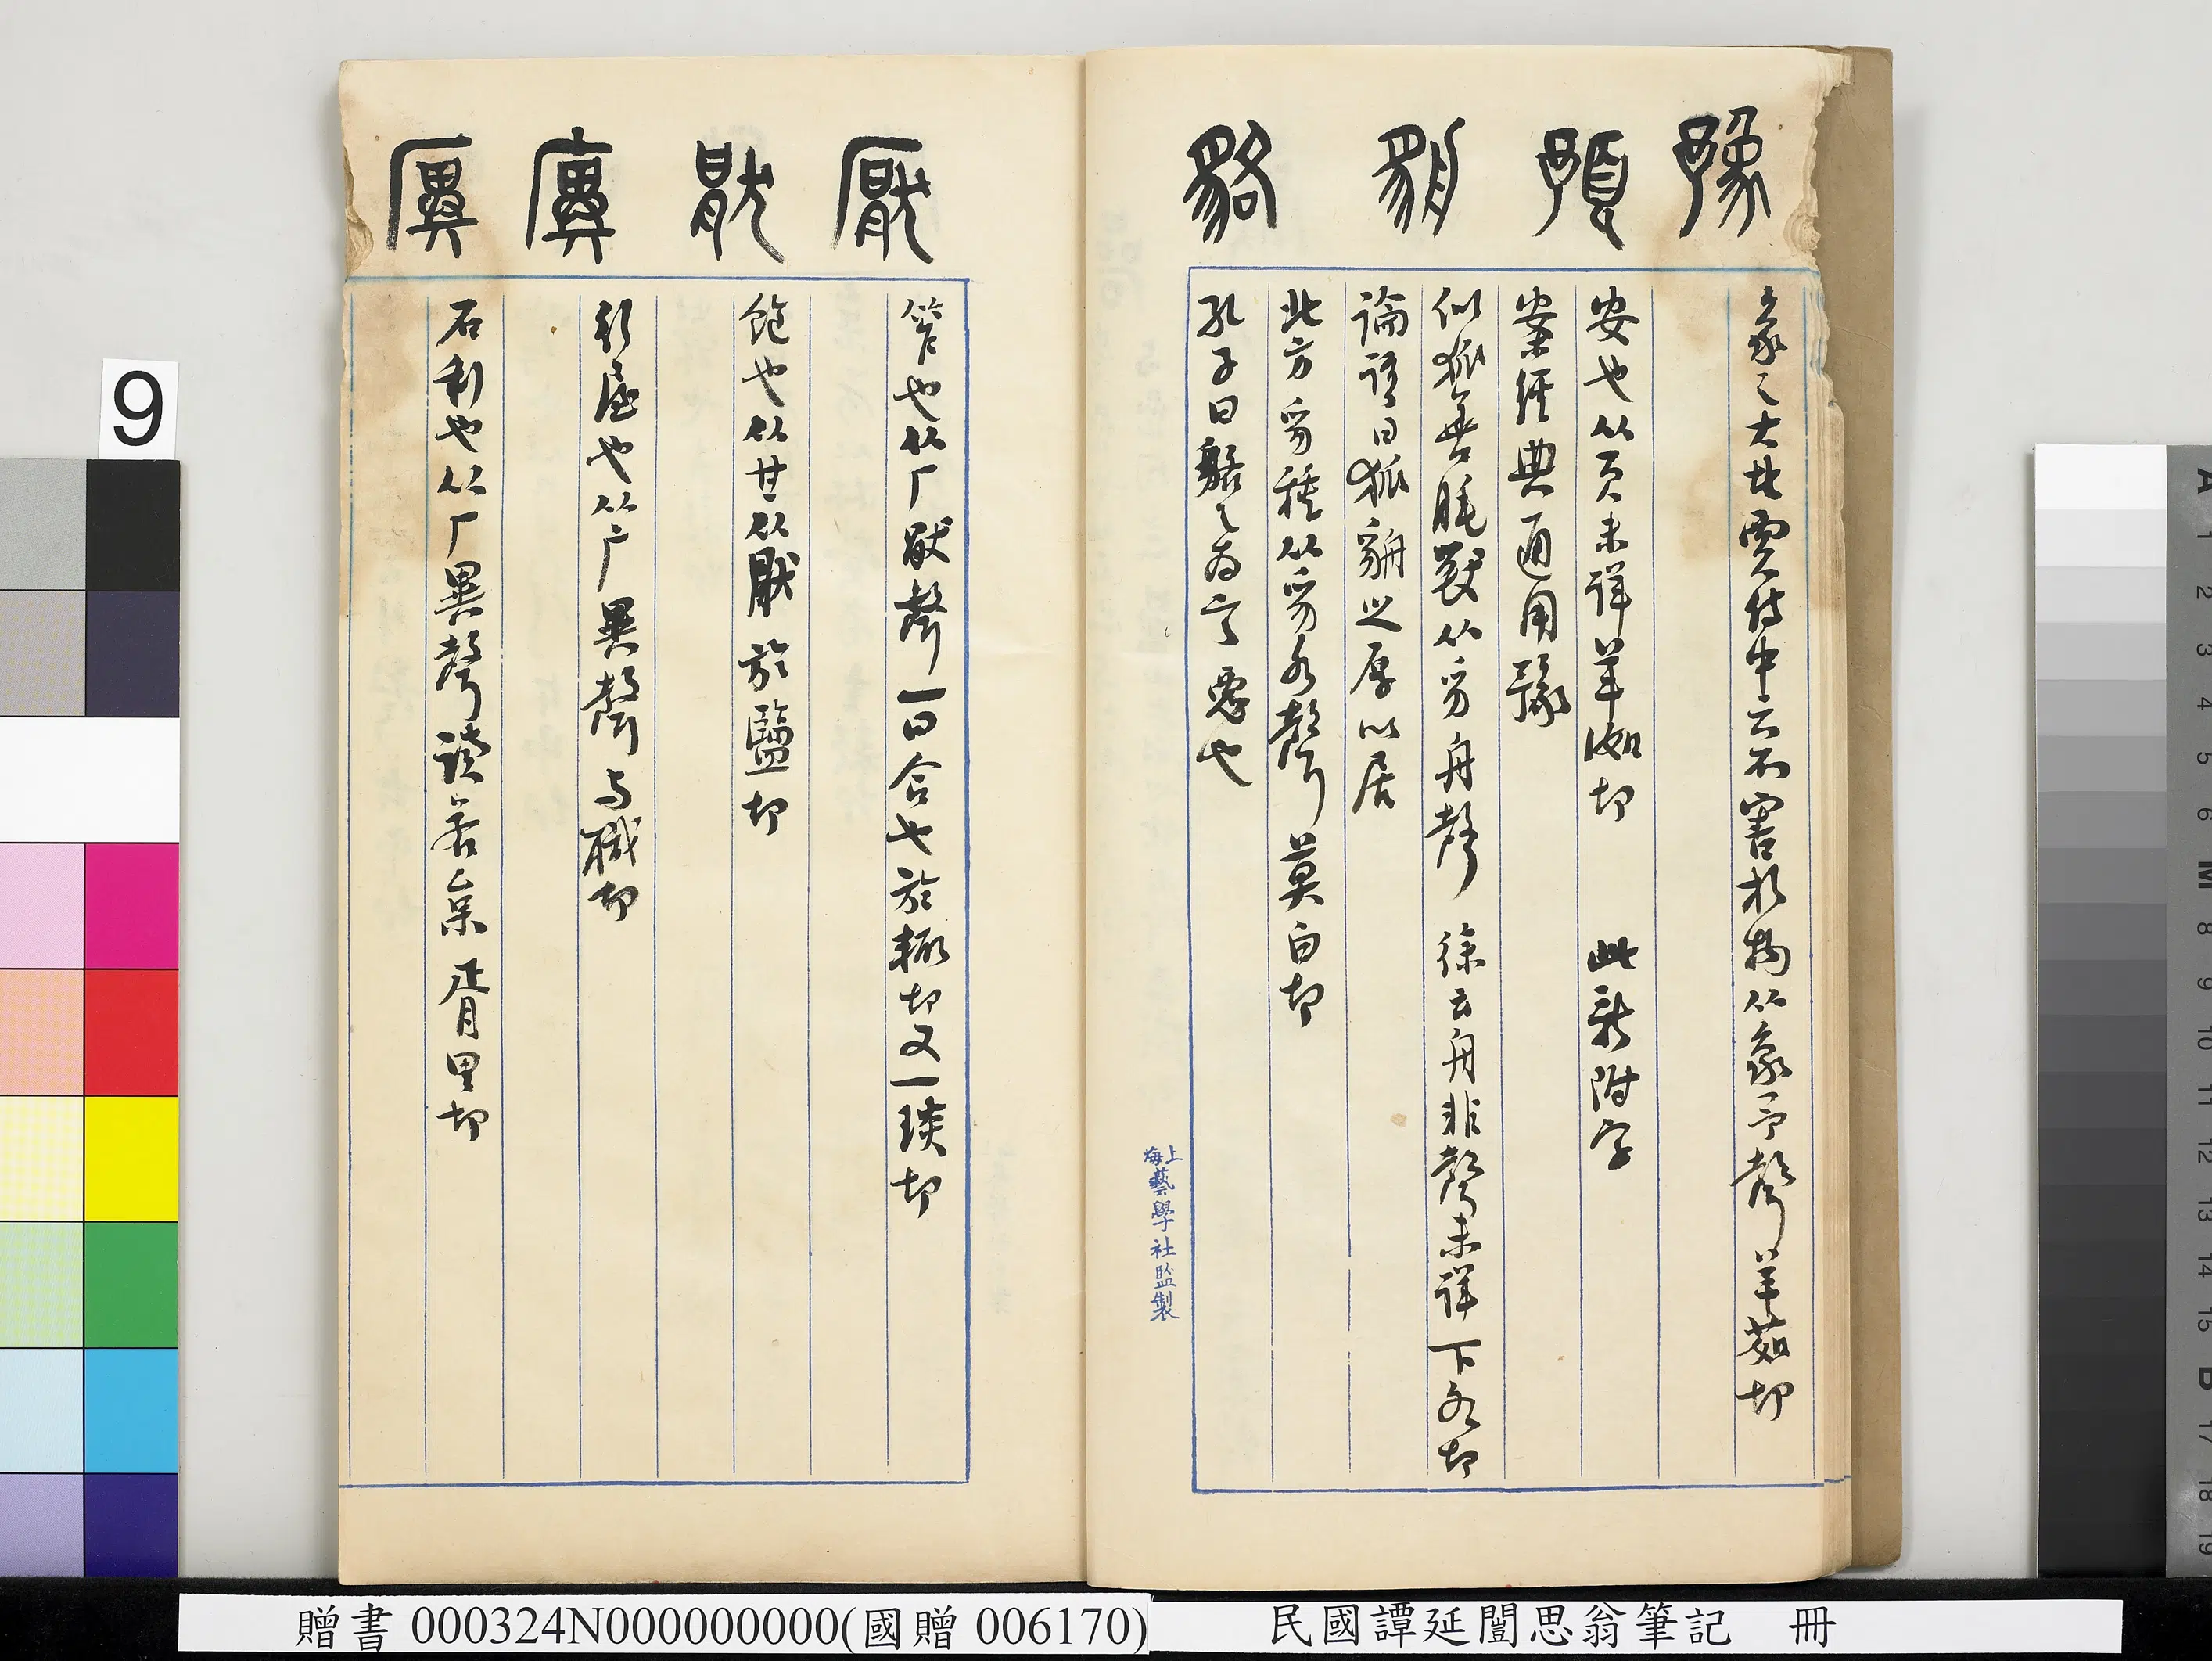 豫
預
貈
貉
象之大者賈侍中云不害於物从象予聲羊茹切
安也从頁未詳羊洳切 此新附字
案經典通用豫
似狐善睡獸从豸舟聲 徐云舟非聲未詳下各切
論語曰狐貈之厚以居
北方豸種从豸各聲莫白切
孔子曰貉之為言惡也
上海藝學社監製
厭
猒
廙
笮也从厂猒聲一曰合也於輒切又一琰切
飽也从甘从肰於鹽切
行屋也从广異聲与職切
石利也从厂異聲讀若枲胥里切
9
贈書000324N000000000(國贈006170) 民國譚延闓思翁筆記 冊
A 1 2 3 4 5 6 M 8 9 10 11 12 13 14 15 B 17 18 19